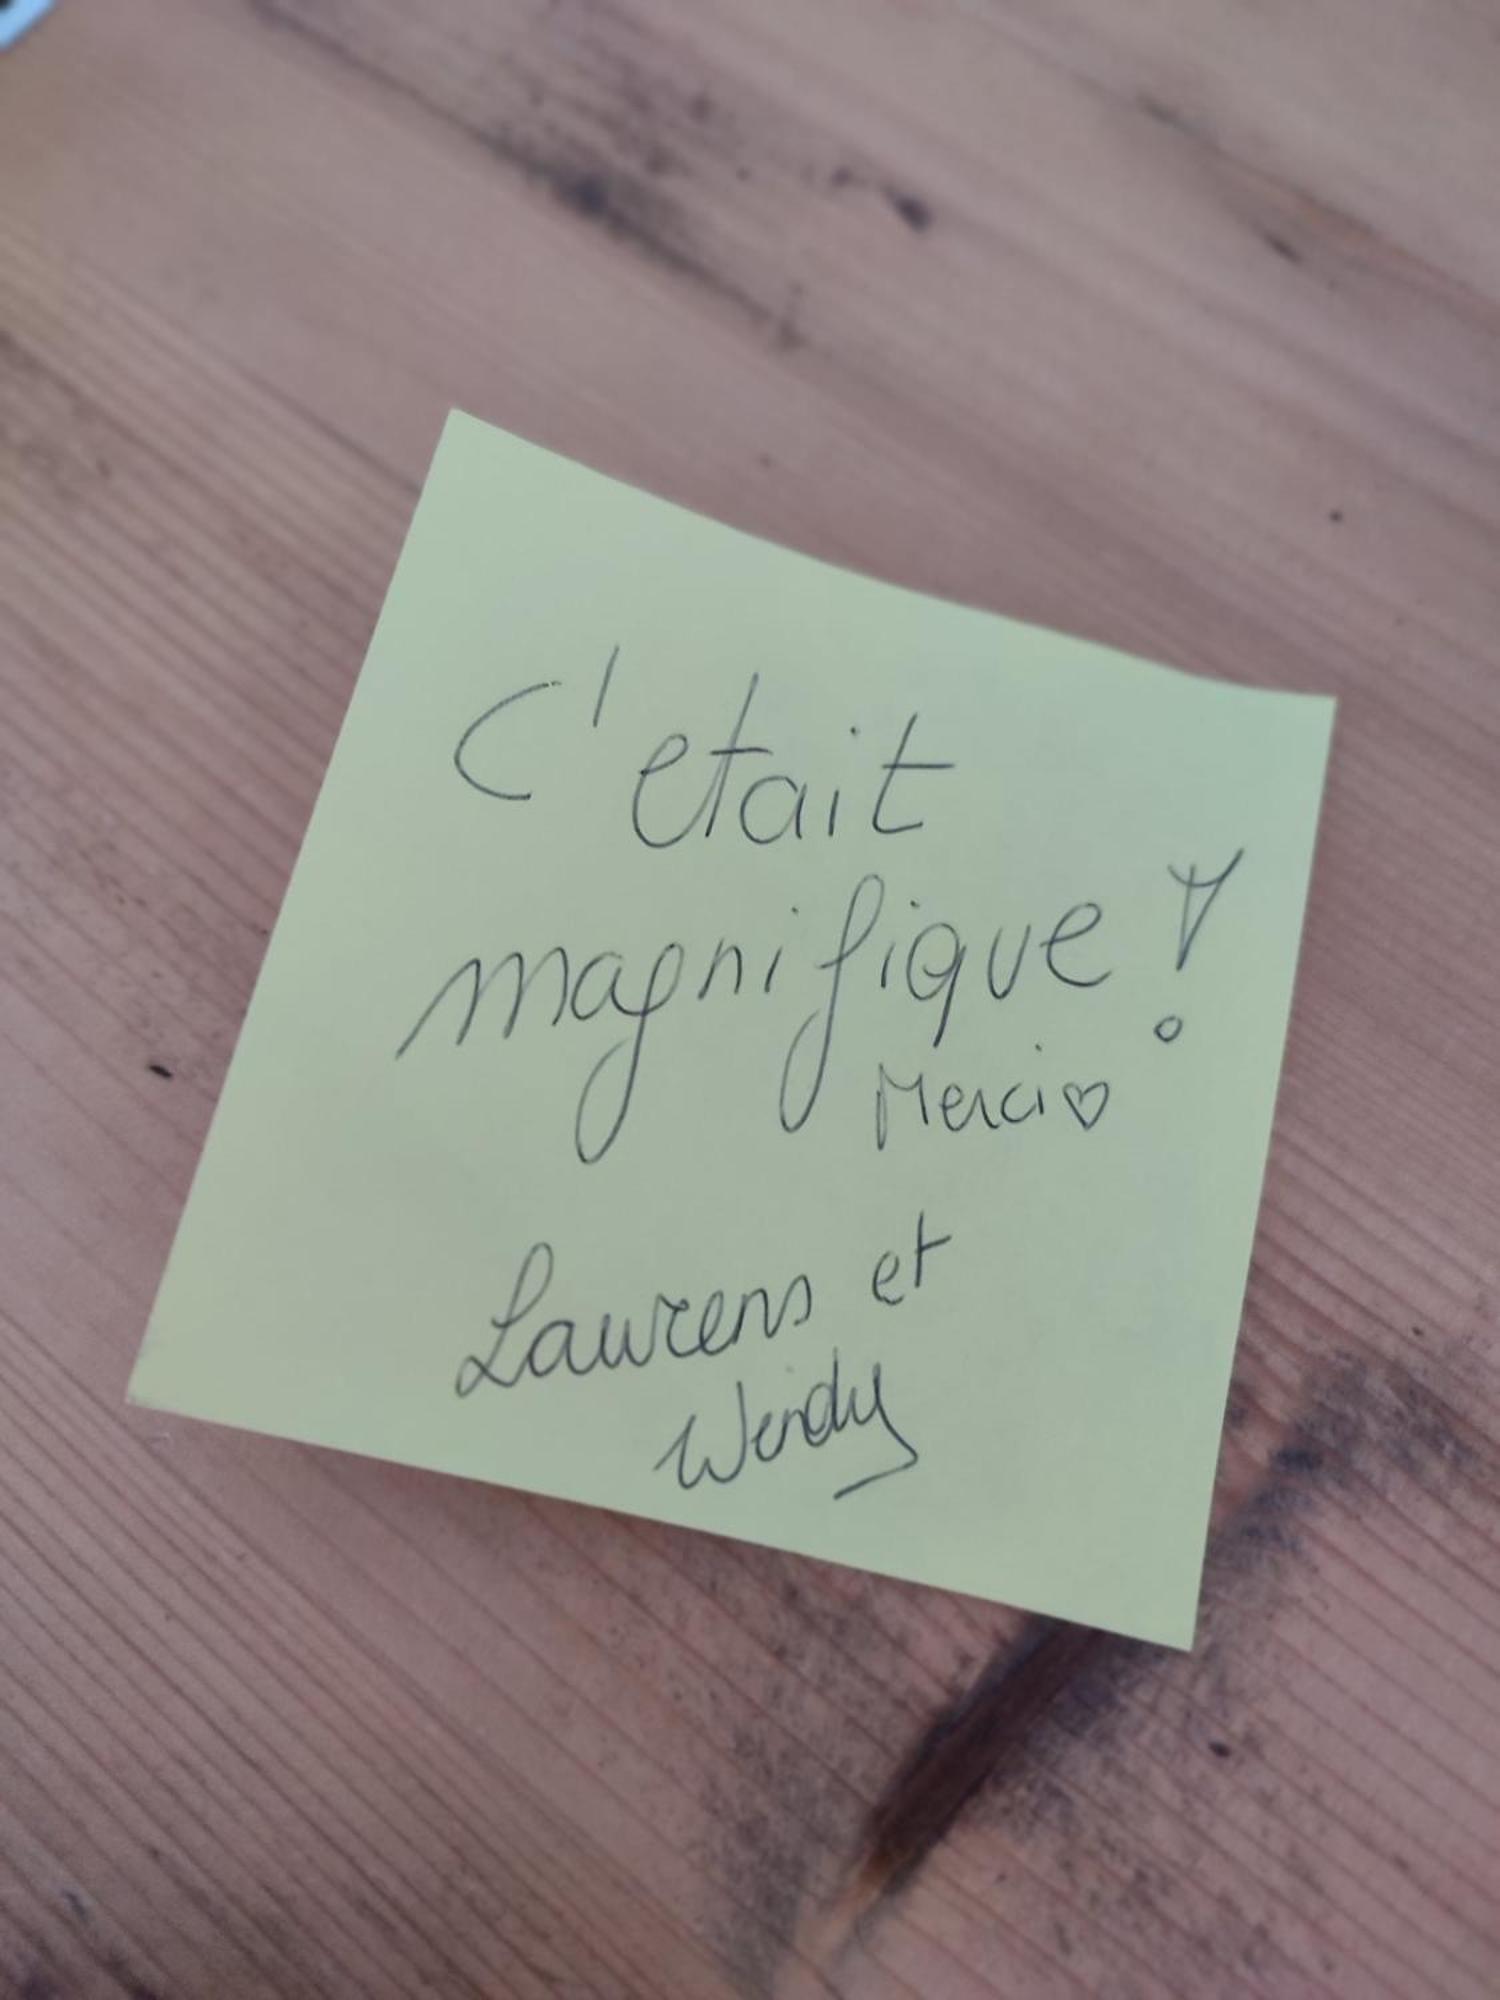 C'etait
magnifique !
Merci ♡
Laurens et
Wendy